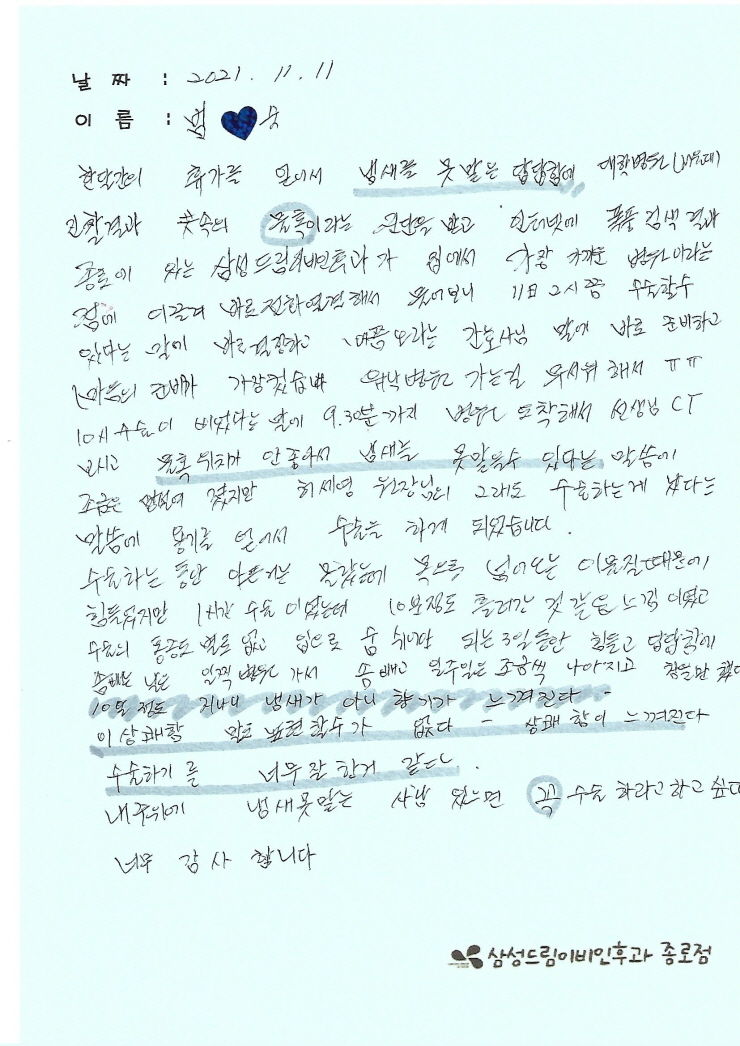 날 짜 : 2021. 11. 11
이 름 : 범 숙
한달간의 휴가를 얻어서 냄새를 못 맡은 답답함에 대학병원
진찰결과 콧속의 물혹이라는 진단을 받고 인터넷에 폭풍 검색 결과
종로에 있는 삼성드림이비인후과가 집에서 가장 가까운 병원이라는
점에 이끌려 바로 전화연결해서 물어보니 11日 2시쯤 수술할수
있다는 말에 바로 결정하고 내원 오라는 간호사님 말에 바로 준비하고
(마음의 준비가 가장 컸습니다 워낙 병원 가는걸 무서워 해서 ㅠㅠ
10시 수술이 비었다는 말에 9.30분까지 병원 도착해서 선생님 CT
보시고 물혹 위치가 안좋아서 냄새를 못맡을수 있다는 말씀에
조금은 망설여 졌지만 허세영 원장님의 그래도 수술하는게 낫다는
말씀에 용기를 얻어서 수술을 하게 되었습니다.
수술하는 동안 아픈거는 몰랐는데 목으로 넘어오는 이물질때문에
힘들었지만 1시간 수술이었는데 10분정도 흘러간 것 같은 느낌이었고
수술의 통증도 별로 없고 입으로 숨 쉬어만 되는 3일동안 힘들고 답답함에
솜빼는 날은 일찍 병원 가서 솜 빼고 일주일은 조금씩 나아지고 참을만 했다
10일 정도 지나니 냄새가 아니 향기가 느껴진다 -
이 상쾌함 말로 표현할수가 없다 - 상쾌함이 느껴진다
수술하기를 너무 잘한거 같다.
내주위에 냄새못맡는 사람 있으면 꼭 수술 하라고 하고 싶다
너무 감사 합니다
삼성드림이비인후과 종로점